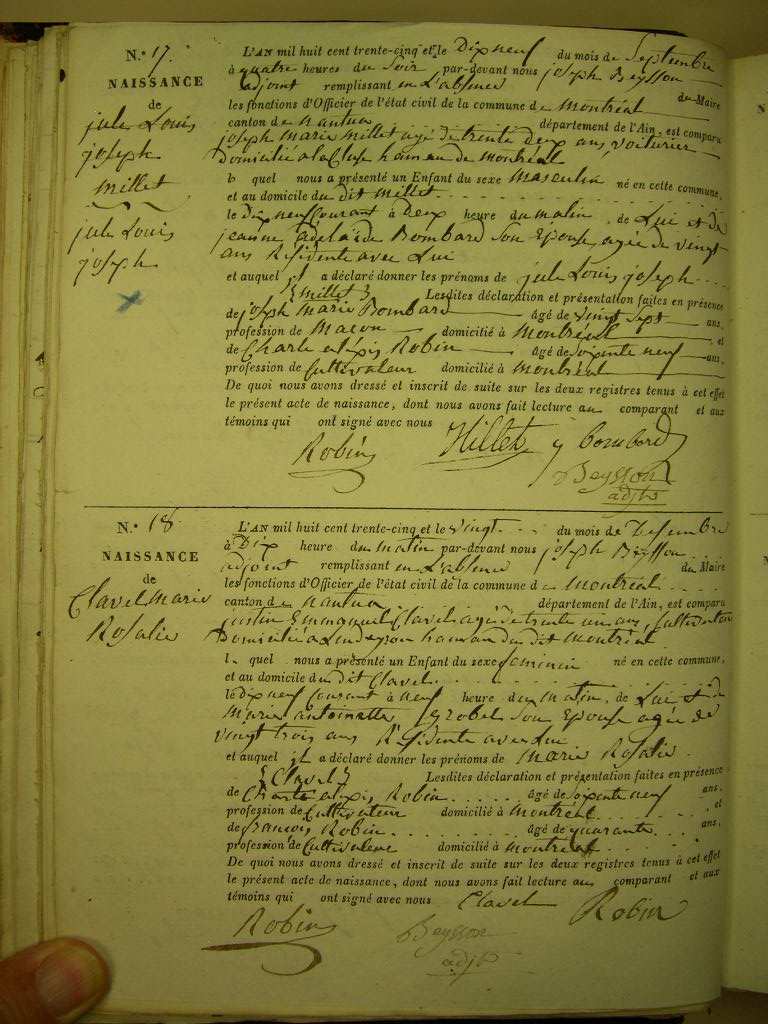 N.° 17.
NAISSANCE
de
jule Louis
joseph
Millet
jule Louis
joseph
L'AN mil huit cent trente-cinq et le Dix neuf du mois de Septembre
à quatre heures du Soir par-devant nous joseph Beysson
adjoint remplissant en L'absence du Maire
les fonctions d'Officier de l'état civil de la commune de Montréal
canton de Nantua département de l'Ain, est comparu
joseph Marie Millet agé de trente deux ans, voiturier
Domicilié a la Cluse hameau de Montréal
lequel nous a présenté un Enfant du sexe Masculin né en cette commune,
et au domicile du dit Millet
le Dix neuf Courant à Deux heure du matin, de Lui et de
jeanne adelaïde Bombard Son Epouse, agée de vingt
ans Résidente avec Lui
et auquel il a déclaré donner les prénoms de jule Louis joseph
{Millet} Lesdites déclaration et présentation faites en présence
de joseph Marie Bombard âgé de vingt sept ans,
profession de Maçon domicilié à Montréal et
de Charle alexis Robin âgé de soixante neuf ans,
profession de Cultivateur domicilié à Montréal
De quoi nous avons dressé et inscrit de suite sur les deux registres tenus à cet effet
le présent acte de naissance, dont nous avons fait lecture au comparant et aux
témoins qui ont signé avec nous
Robin Millet j bombard
Beysson
adjt
N.° 18
NAISSANCE
de
Clavel Marie
Rosalie
L'AN mil huit cent trente-cinq et le vingt du mois de
à Dix heure du matin par-devant nous joseph Beysson
adjoint remplissant en L'absence du Maire
les fonctions d'Officier de l'état civil de la commune de Montréal
canton de Nantua département de l'Ain, est comparu
justin Emmanuel Clavel agé de trente un ans, Cultivateur
Domicilié a hameau du dit Montréal
lequel nous a présenté un Enfant du sexe feminin né en cette commune,
et au domicile du dit Clavel
le dix neuf Courant à neuf heure du matin, de Lui et de
Marie antoinette Son Epouse agée de
vingt trois ans Résidente avec Lui
et auquel il a déclaré donner les prénoms de Marie Rosalie
{Clavel} Lesdites déclaration et présentation faites en présence
de Charle alexis Robin âgé de soixante neuf ans,
profession de Cultivateur domicilié à Montréal et
de Robin âgé de quarante ans,
profession de Cultivateur domicilié à Montréal
De quoi nous avons dressé et inscrit de suite sur les deux registres tenus à cet effet
le présent acte de naissance, dont nous avons fait lecture au comparant et aux
témoins qui ont signé avec nous Clavel Robin
Robin Beysson
adjt